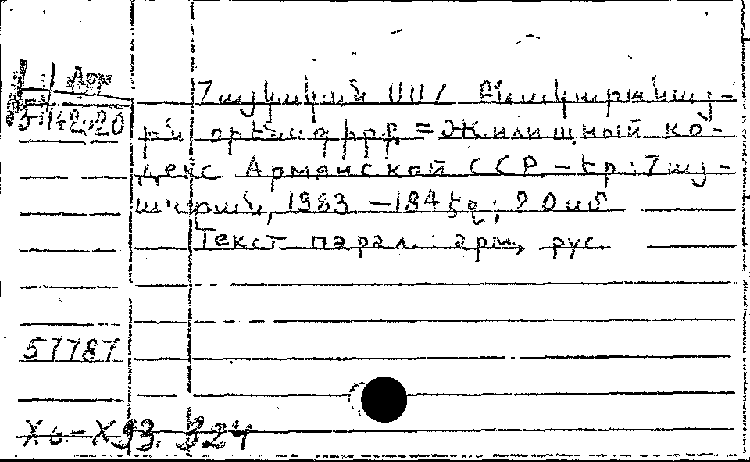 Арм
5 142.20
Հայկական ՍՍՀ Բնակարանայ-
ին օրենսգիրք = Жилищный ко-
декс Армянской ССР. – Եր.: Հայ-
աստան, 1983 – 184 էջ; 20 սմ
Текст парал.: арм., рус.
57787
Х6-Х93.324